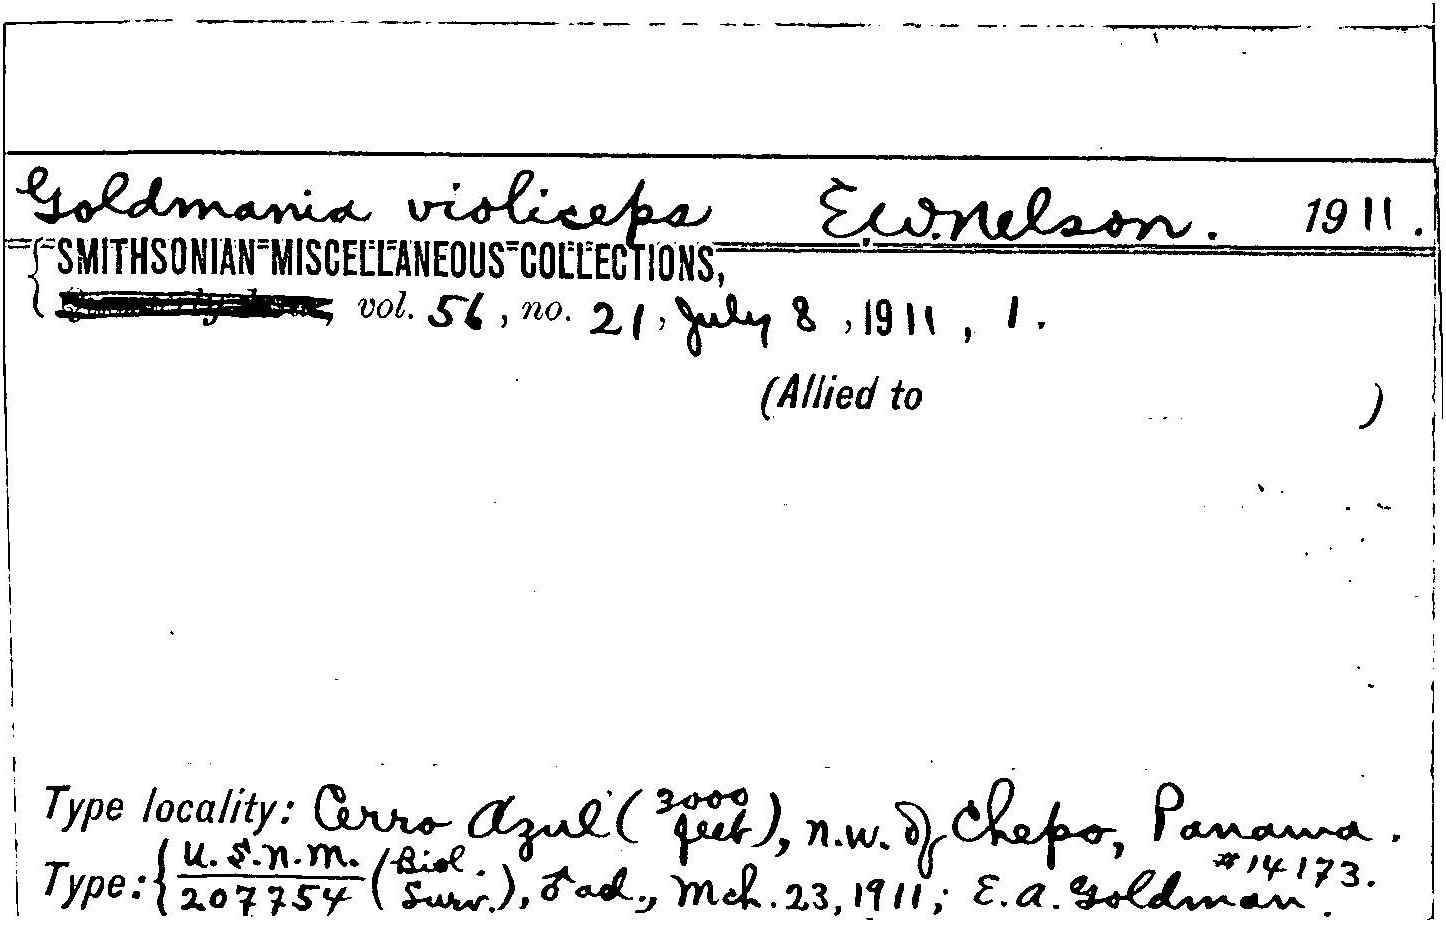 Goldmania violiceps E.W. Nelson. 1911.
SMITHSONIAN MISCELLANEOUS COLLECTIONS,
vol. 56, no. 21, July 8, 1911, 1.
(Allied to )
Type locality: Cerro Azul (3000 feet), n.w. of Chepo, Panama.
Type: { U.S.N.M. 207754 (Biol. Surv.), ♂ ad., Mch. 23, 1911; E.A. Goldman. #14173.